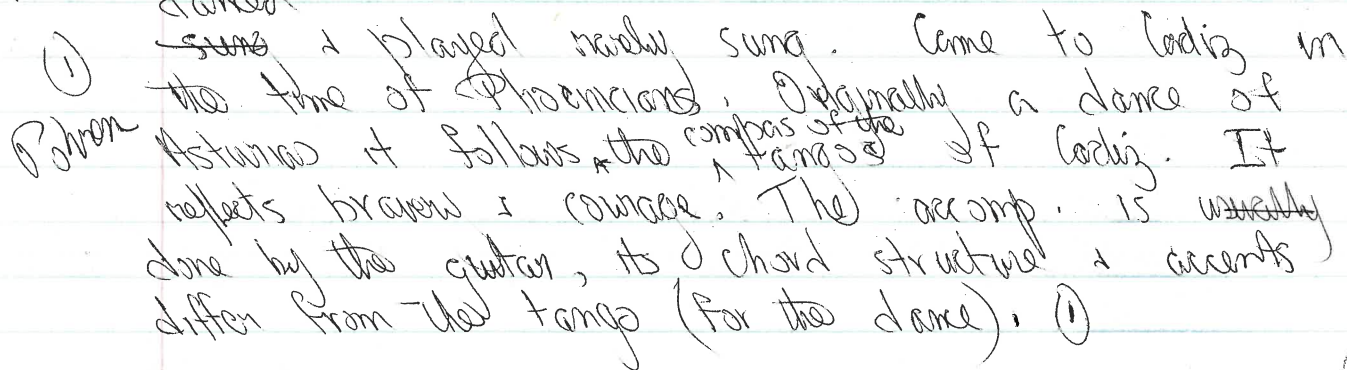 danced
① sung & played rarely sung. Came to Cadiz in
the time of Phoenicians. Originally a dance of
compas of the
Pohren Asturias it follows the tangos of Cadiz. It
reflects bravery & courage. The accomp. is usually
done by the guitar, its chord structure & accents
differ from the tango (for the dance). ①